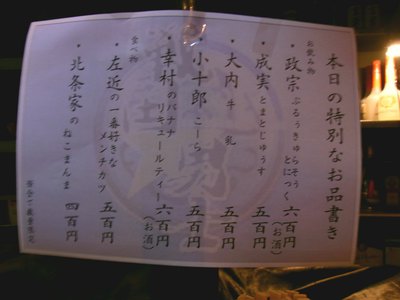 本日の特別なお品書き
お飲み物
・政宗 ぶるうきゅらそう とにっく 六百円(お酒)
・成実 とまとじゅうす 五百円
・大内 牛乳 五百円
・小十郎 こーら 五百円
・幸村のバナナリキュールティー 六百円(お酒)
食べ物
・左近の一番好きなメンチカツ 五百円
・北条家のねこまんま 四百円